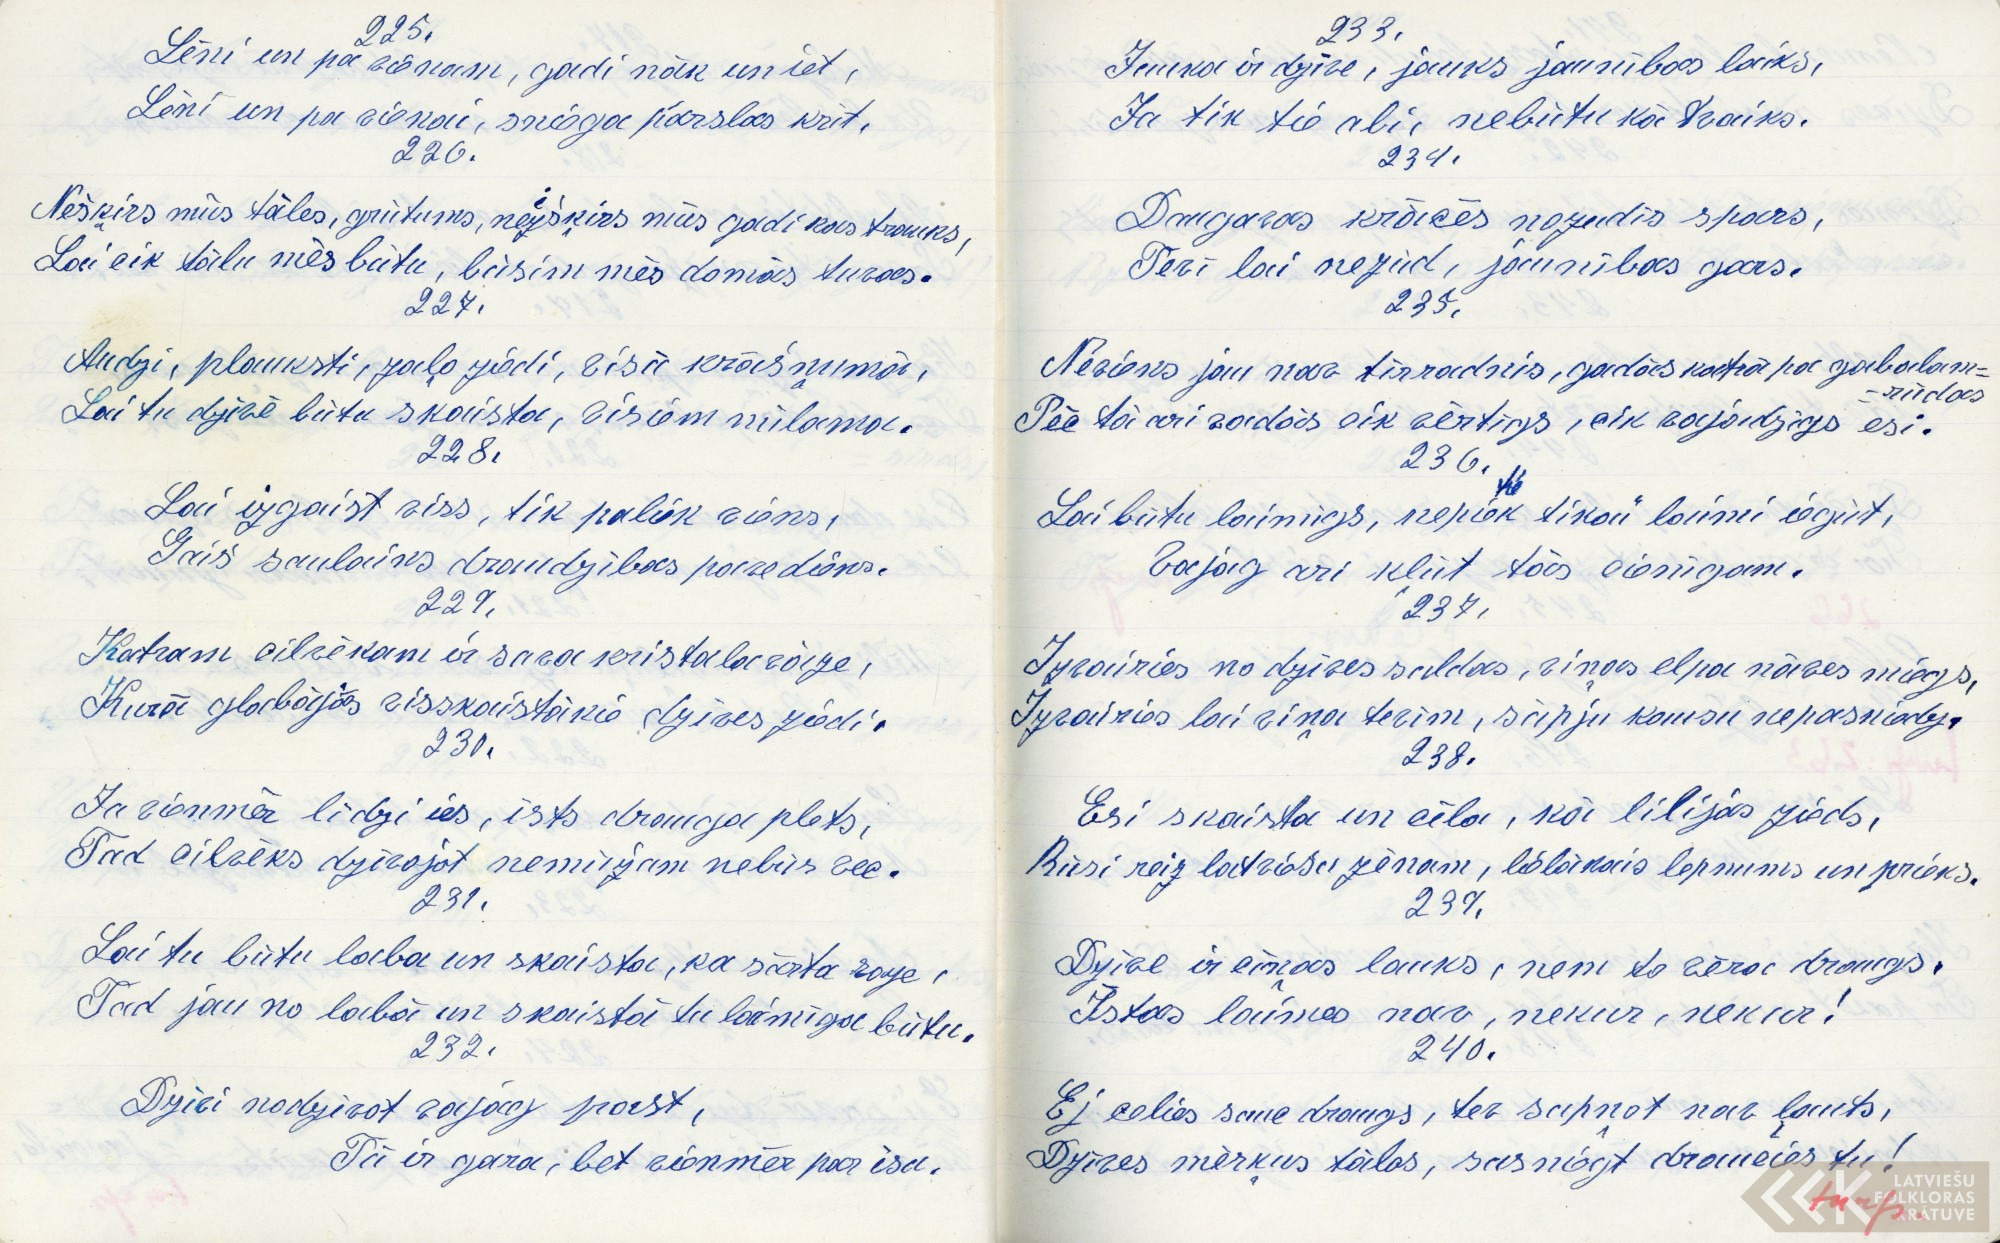 225.
Lēni un pa vienam, gadi nāk un iet,
Lēni un pa vienai, sniega pārslas krīt.
226.
Nešķirs mūs tāles, grūtums, neišķirs mūs gadi kas trauks,
Lai cik tālu mēs būtu, būsim mēs domās tuvas.
227.
Audzi, plauksti, zaļo ziedi, visā krāšņumā,
Lai tu dzīvē būtu skaista, visiem mīlama.
228.
Lai izgaist viss, tik paliek viens,
Gaiš saulains draudzības pavediens.
229.
Katram cilvēkam ir sava kristala vāze,
Kurā glabājās visskaistākie dzīves ziedi.
230.
Ja vienmēr līdzi ies, īsts drauga plets,
Tad cilvēks dzīvojot nemūžam nebūs vec.
231.
Lai tu būtu laba un skaista, ka sārta roze,
Tad jau no labā un skaistā tu laimīga būtu.
232.
Dzīvi nodzīvot vajag prast,
Tā ir gara, bet vienmēr par īsu.
233.
Jauka ir dzīve, jauks jaunības laiks,
Ja tik tie abi, nebūtu kā tvaiks.
234.
Daugavas krācēs nozudīs spars,
Tevī lai nezūd, jaunības gars.
235.
Neviens jau nav tīrradnis, gadās katrā pa gabalam=
=rūdas
Pēc tā arī radās cik vērtīgs, cik vajadzīgs esi.
236.
Lai būtu laimīgs, nepietiek tikai laimi iegūt,
Vajag arī kļūt tās cienīgam.
237.
Izvairies no dzīves saldas, viņas elpa nāves miegs,
Izvairies lai viņa tevim, sāpju kausu nepasniedz.
238.
Esi skaista un cēla, kā lilijas zieds,
Būsi reiz latviešu zēnam, lielākais lepnums un prieks.
239.
Dzīve ir cīņas lauks, ņem to vērā draugs.
Īstas laimes nav, nekur, nekur!
240.
Ej celies sauc draugs, tev sapņot nav ļauts,
Dzīves mērķus tālos, sasniegt draucies tu!
turp.
LATVIEŠU
FOLKLORAS
KRĀTUVE